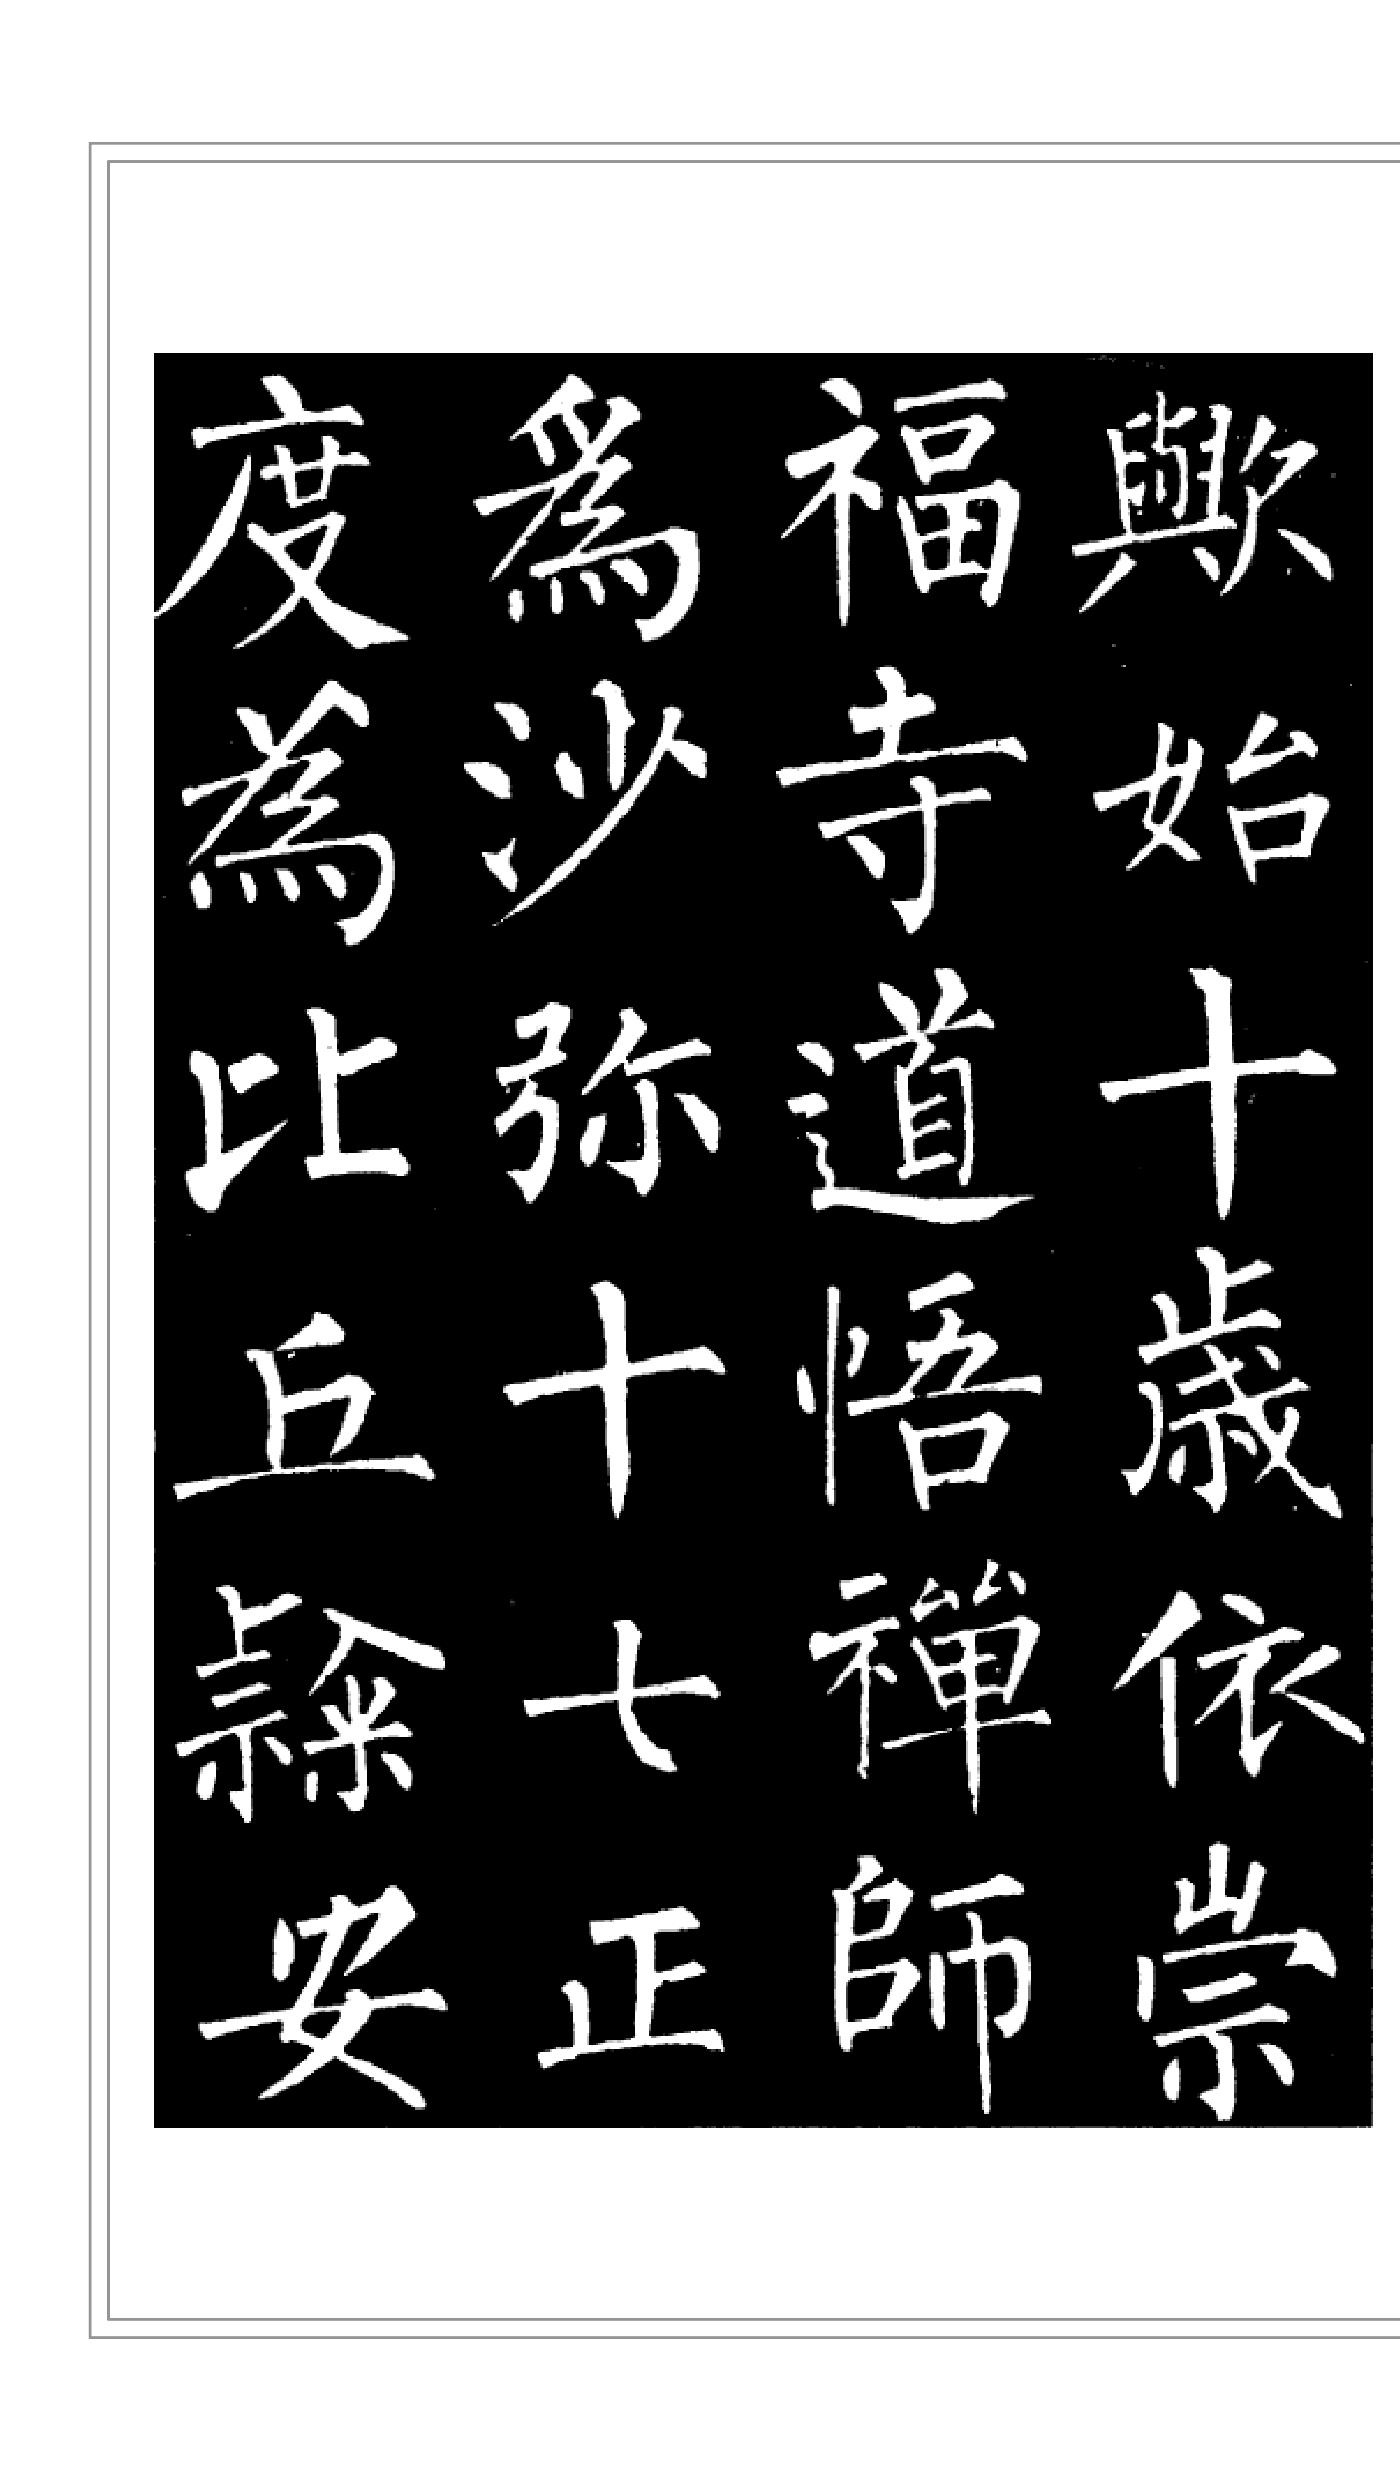 歟始十歲依崇
福寺道悟禪師
為沙弥十七正
度為比丘隸安